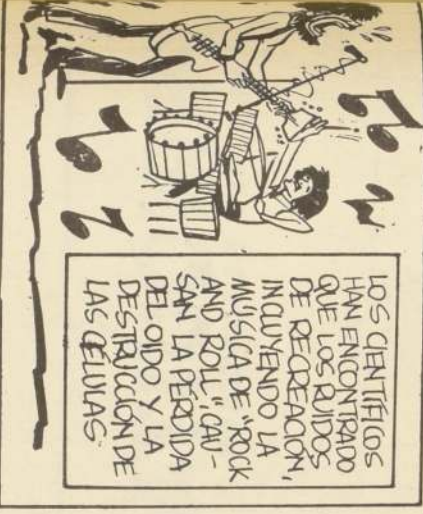 LOS CIENTÍFICOS
HAN ENCONTRADO
QUE LOS RUIDOS
DE RECREACIÓN,
INCLUYENDO LA
MUSICA DE "ROCK
AND ROLL", CAU-
SAN LA PÉRDIDA
DEL OIDO Y LA
DESTRUCCIÓN DE
LAS CÉLULAS